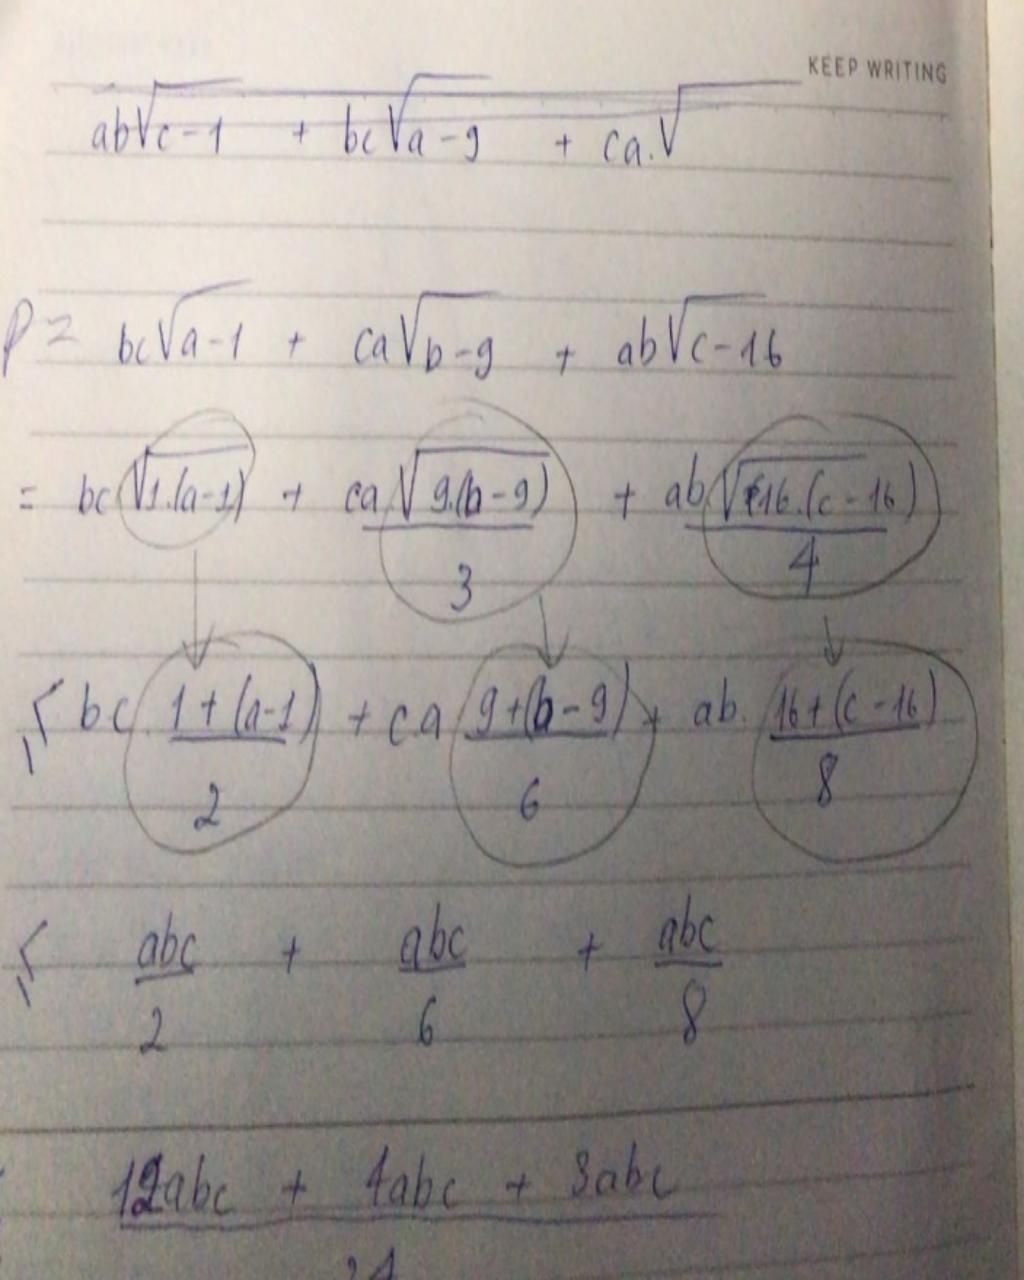 KEEP WRITING
ab√(c-1) + bc√(a-9) + ca.√
P = bc√(a-1) + ca√(b-9) + ab√(c-16)
= bc√(1.(a-1)) + ca√(9.(b-9))/3 + ab√(16.(c-16))/4
≤ bc. (1+(a-1))/2 + ca (9+(b-9))/6 + ab. (16+(c-16))/8
≤ abc/2 + abc/6 + abc/8
(12abc + 4abc + 3abc)/24